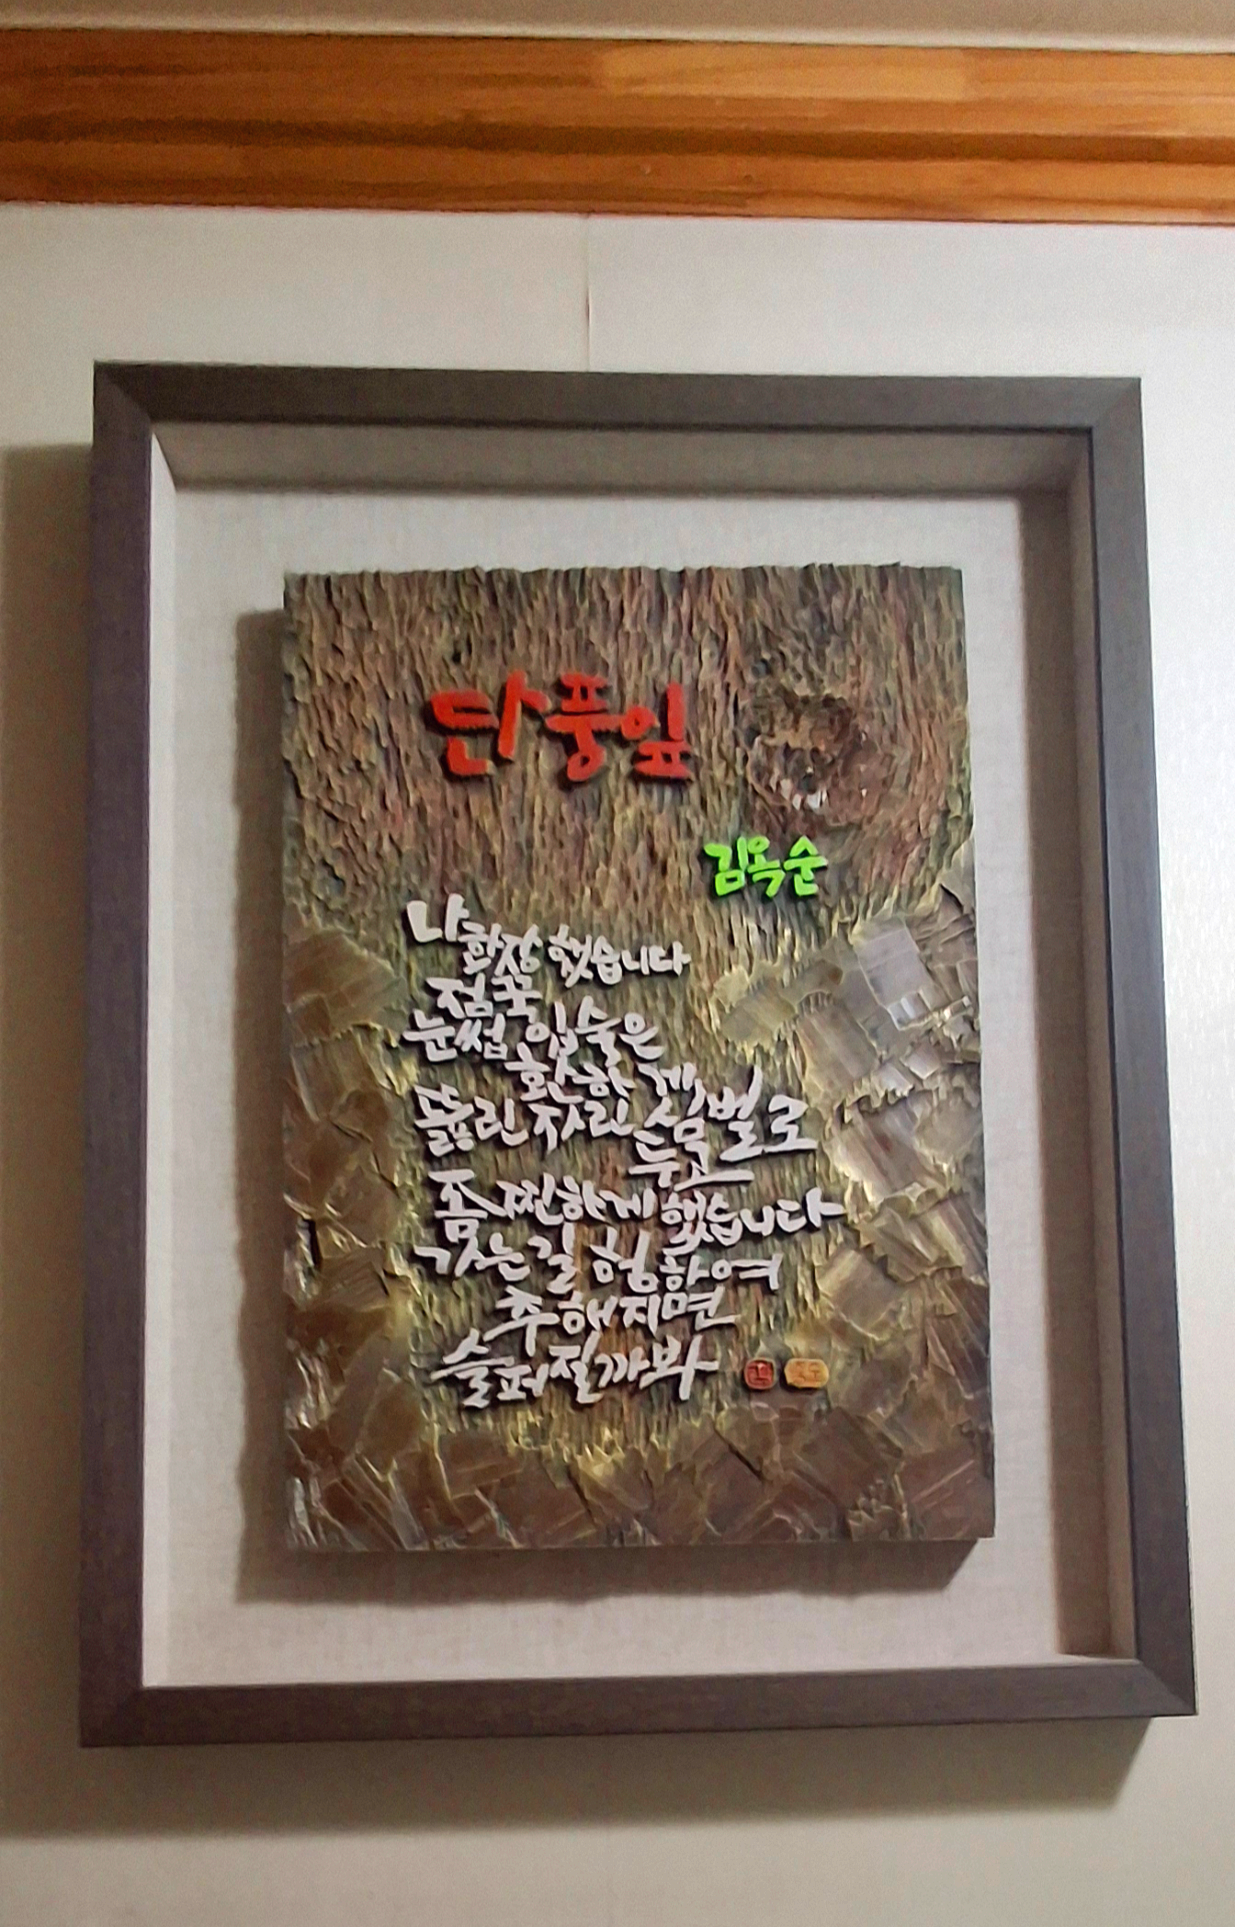 단풍잎
김옥순
나 화장 했습니다
점 꼭
눈썹 입술은
환하게
뚫린 자린 섬벌로
두고
좀 찐하게 했습니다
가는 길 험하여
추해지면
슬퍼질까봐